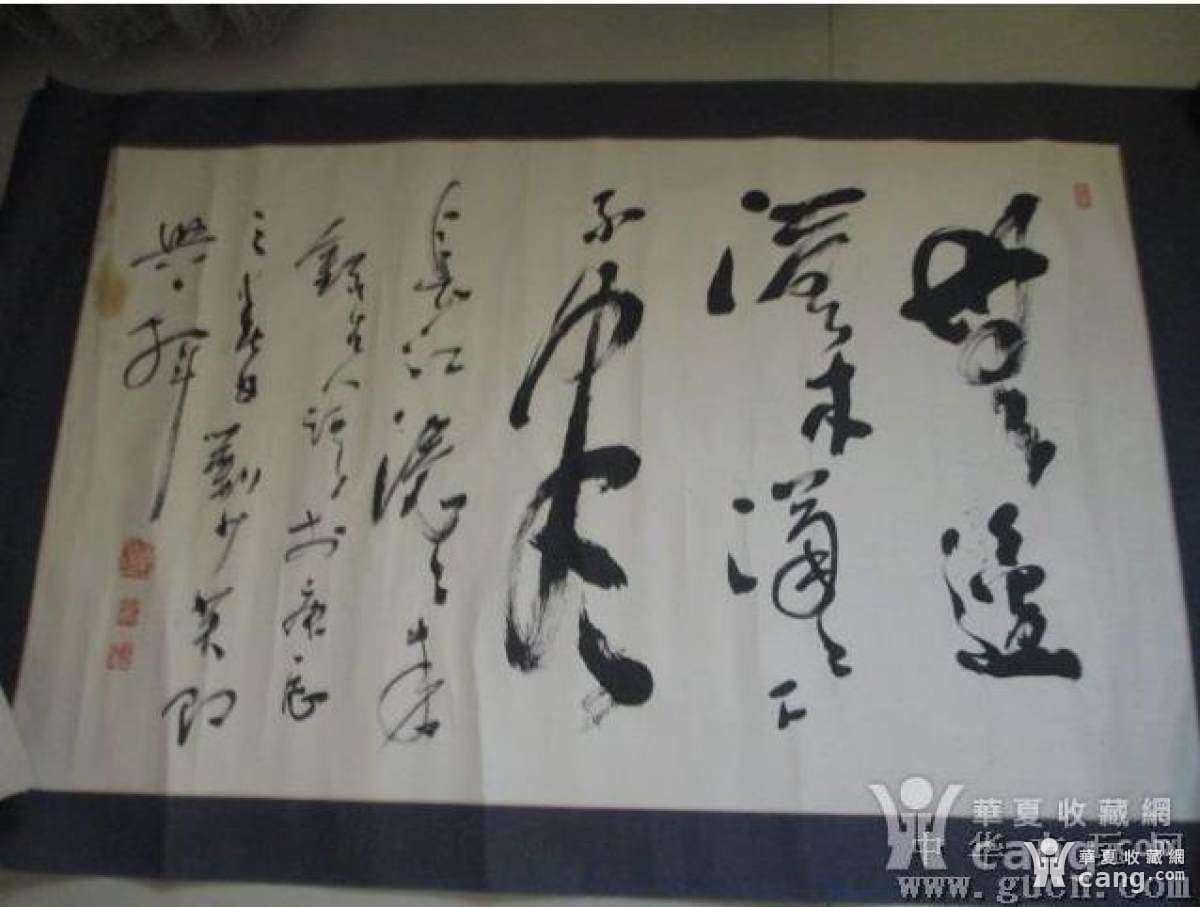 無邊
落木蕭々下
不盡
長江滾々來
錄古人詩於庚辰
之春日劉少英即
興揮
華夏收藏網
cang.com
www.gucn.com
華夏收藏網
cang.com